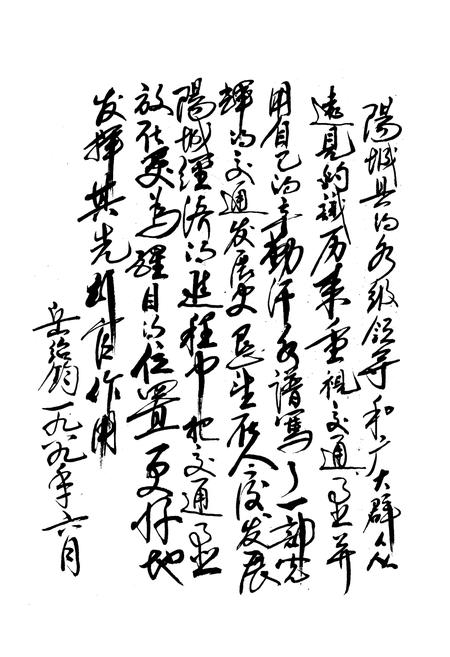 陽城县的各级领导和广大群众
遠見灼識历来重視交通事业并
用自己的辛勤汗水譜寫了一部光
輝的交通发展史望在今後发展
陽城經济的進程中把交通事业
放在更為醒目的位置更好地
发揮其先行官作用
岳鈞一九八九年六月